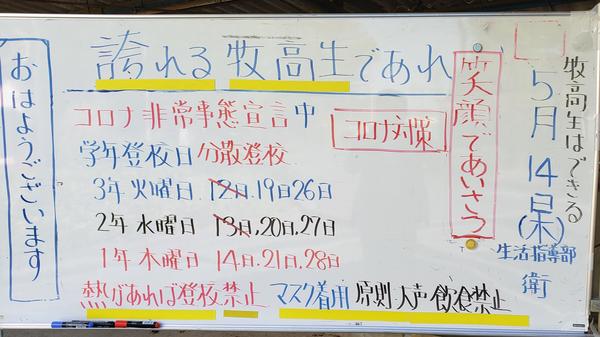 牧高生はできる
5月14日(木)
生活指導部
衛
誇れる牧高生であれ
笑顔であいさつ
おはようございます
コロナ非常事態宣言中
コロナ対策
学年登校日分散登校
3年火曜日 12日.19日26日
2年水曜日 13日.20日.27日
1年木曜日 14日.21日.28日
熱があれば登校禁止 マスク着用 原則大声・飲食禁止